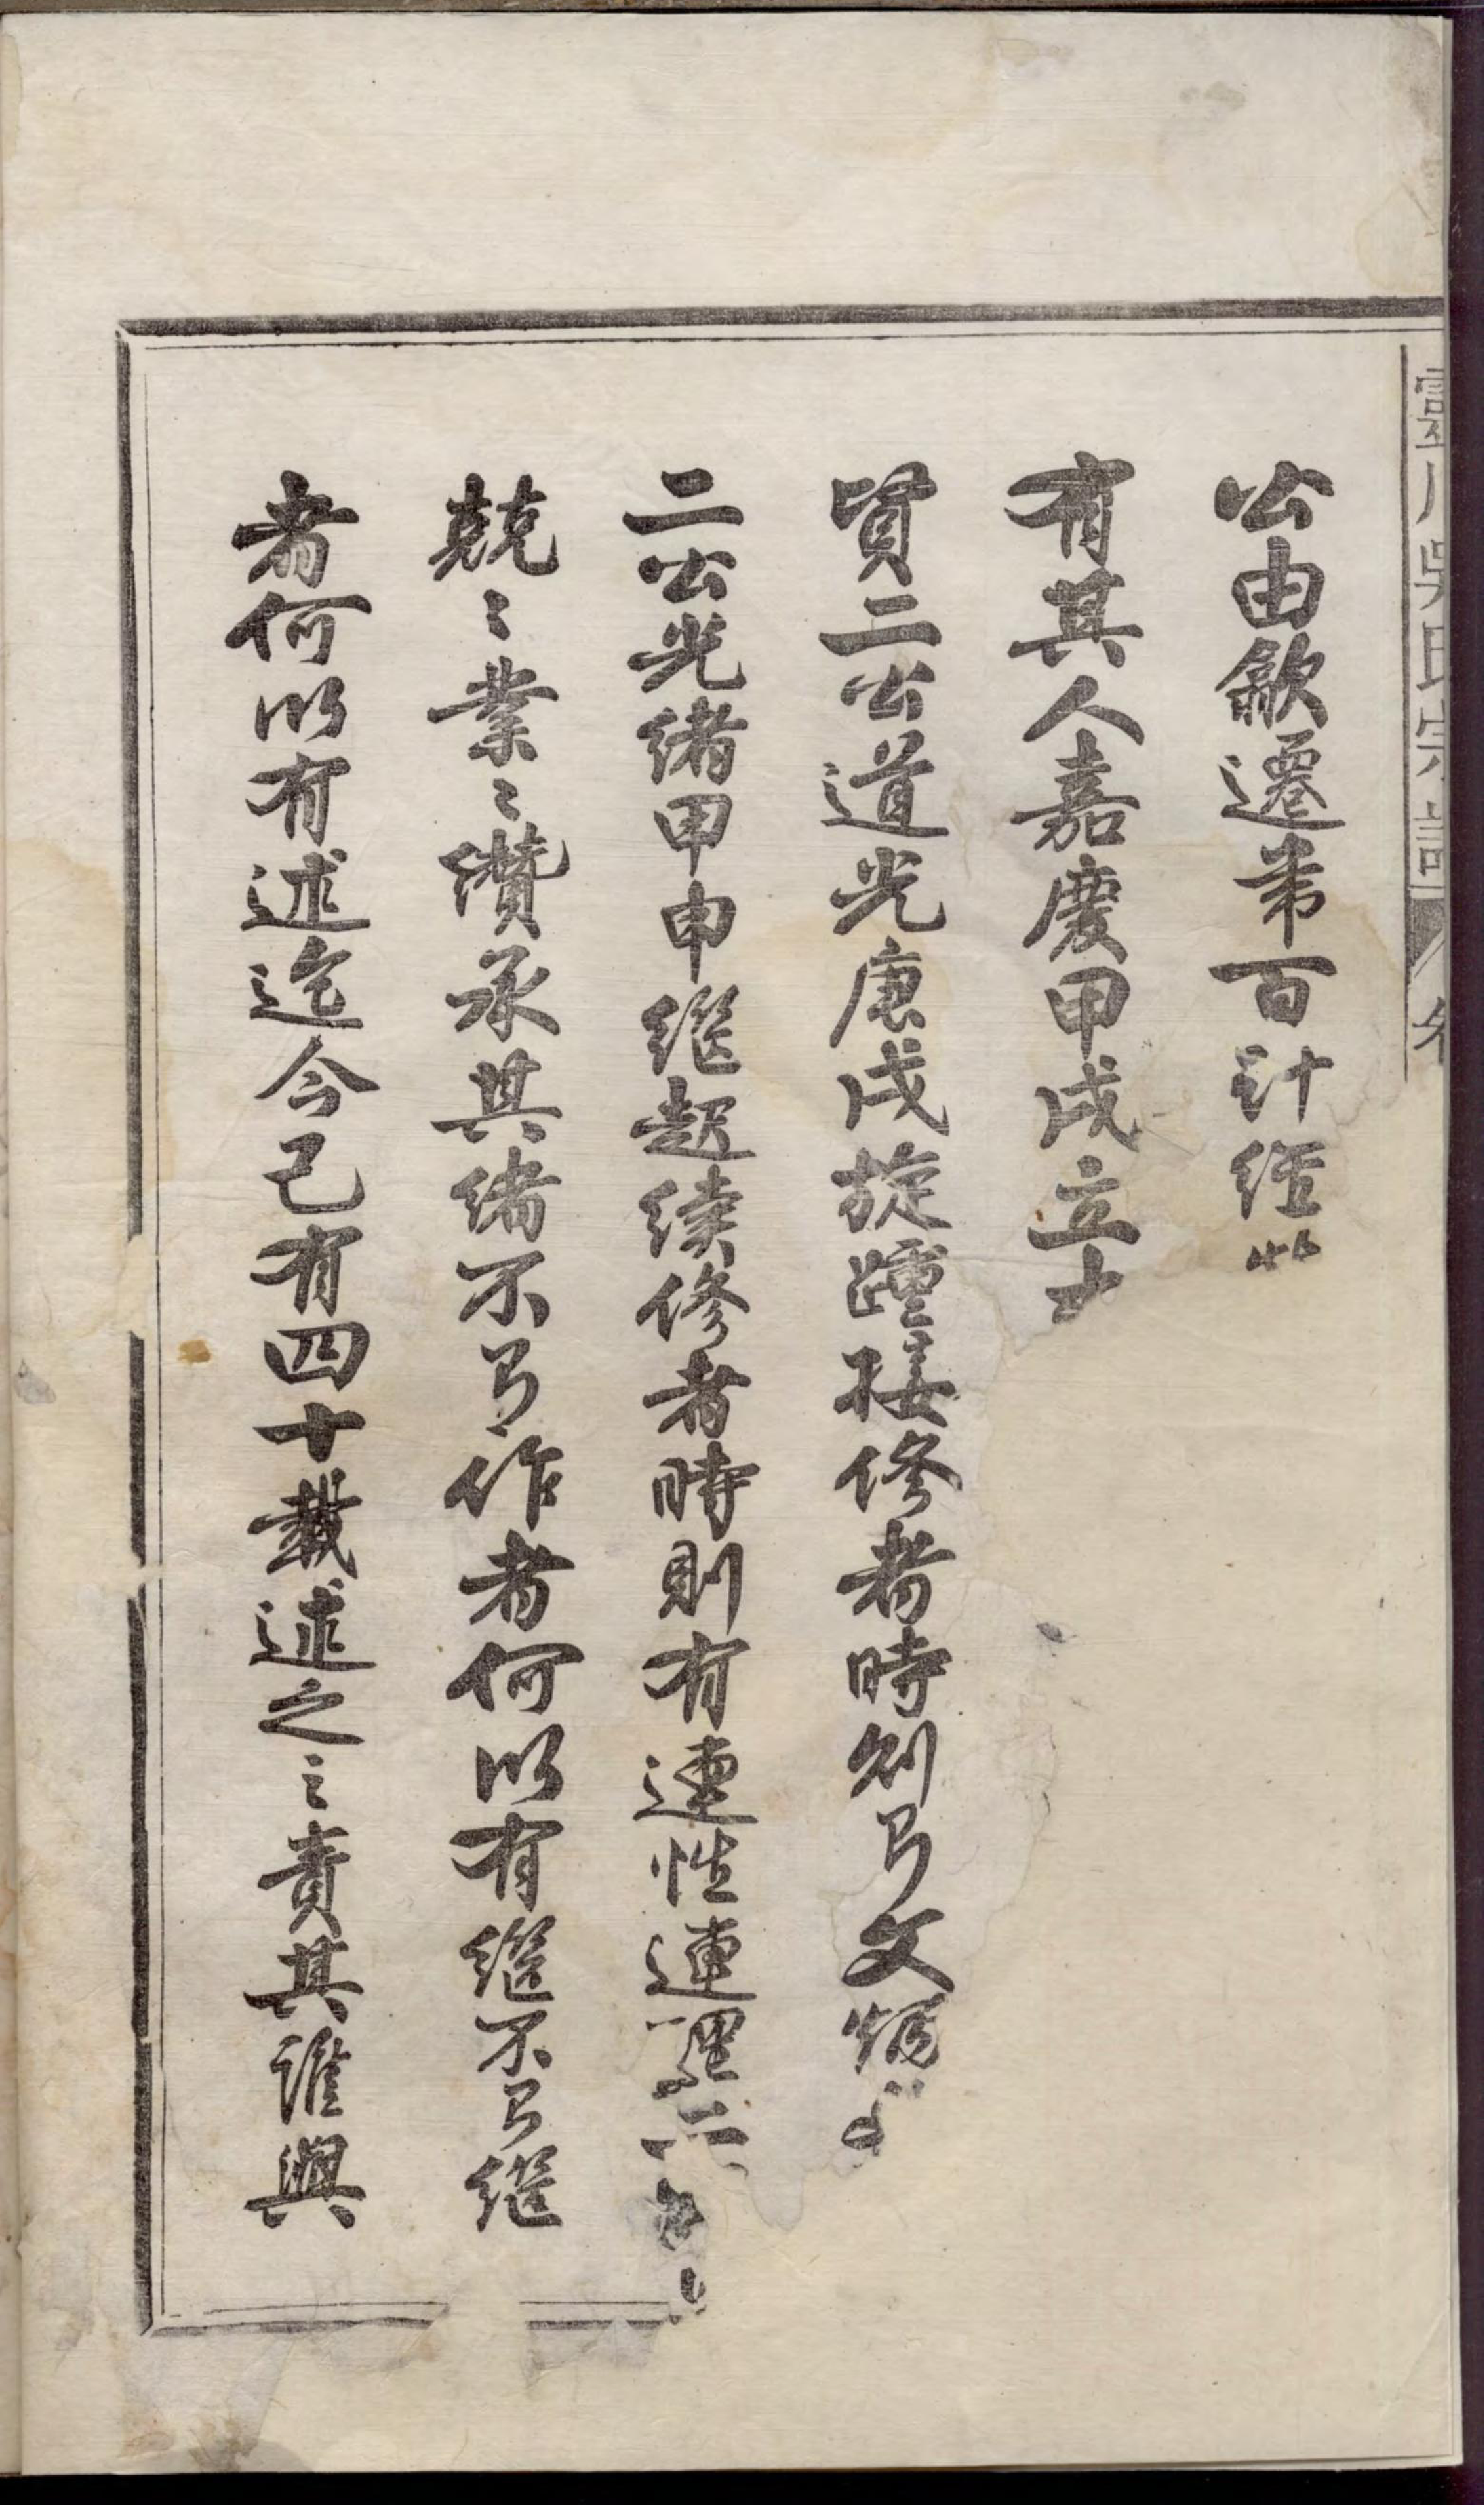 川吳氏宗譜
公由歙遷百計經
有其人嘉慶甲戌立
賢二公道光庚戌旋踵接修者時則有文炳
二公光緒甲申継起续修者時則有連性連理二
兢〻業〻纘承其緒不有作者何以有継不有継
者何以有述迄今已有四十載述之〻責其誰與